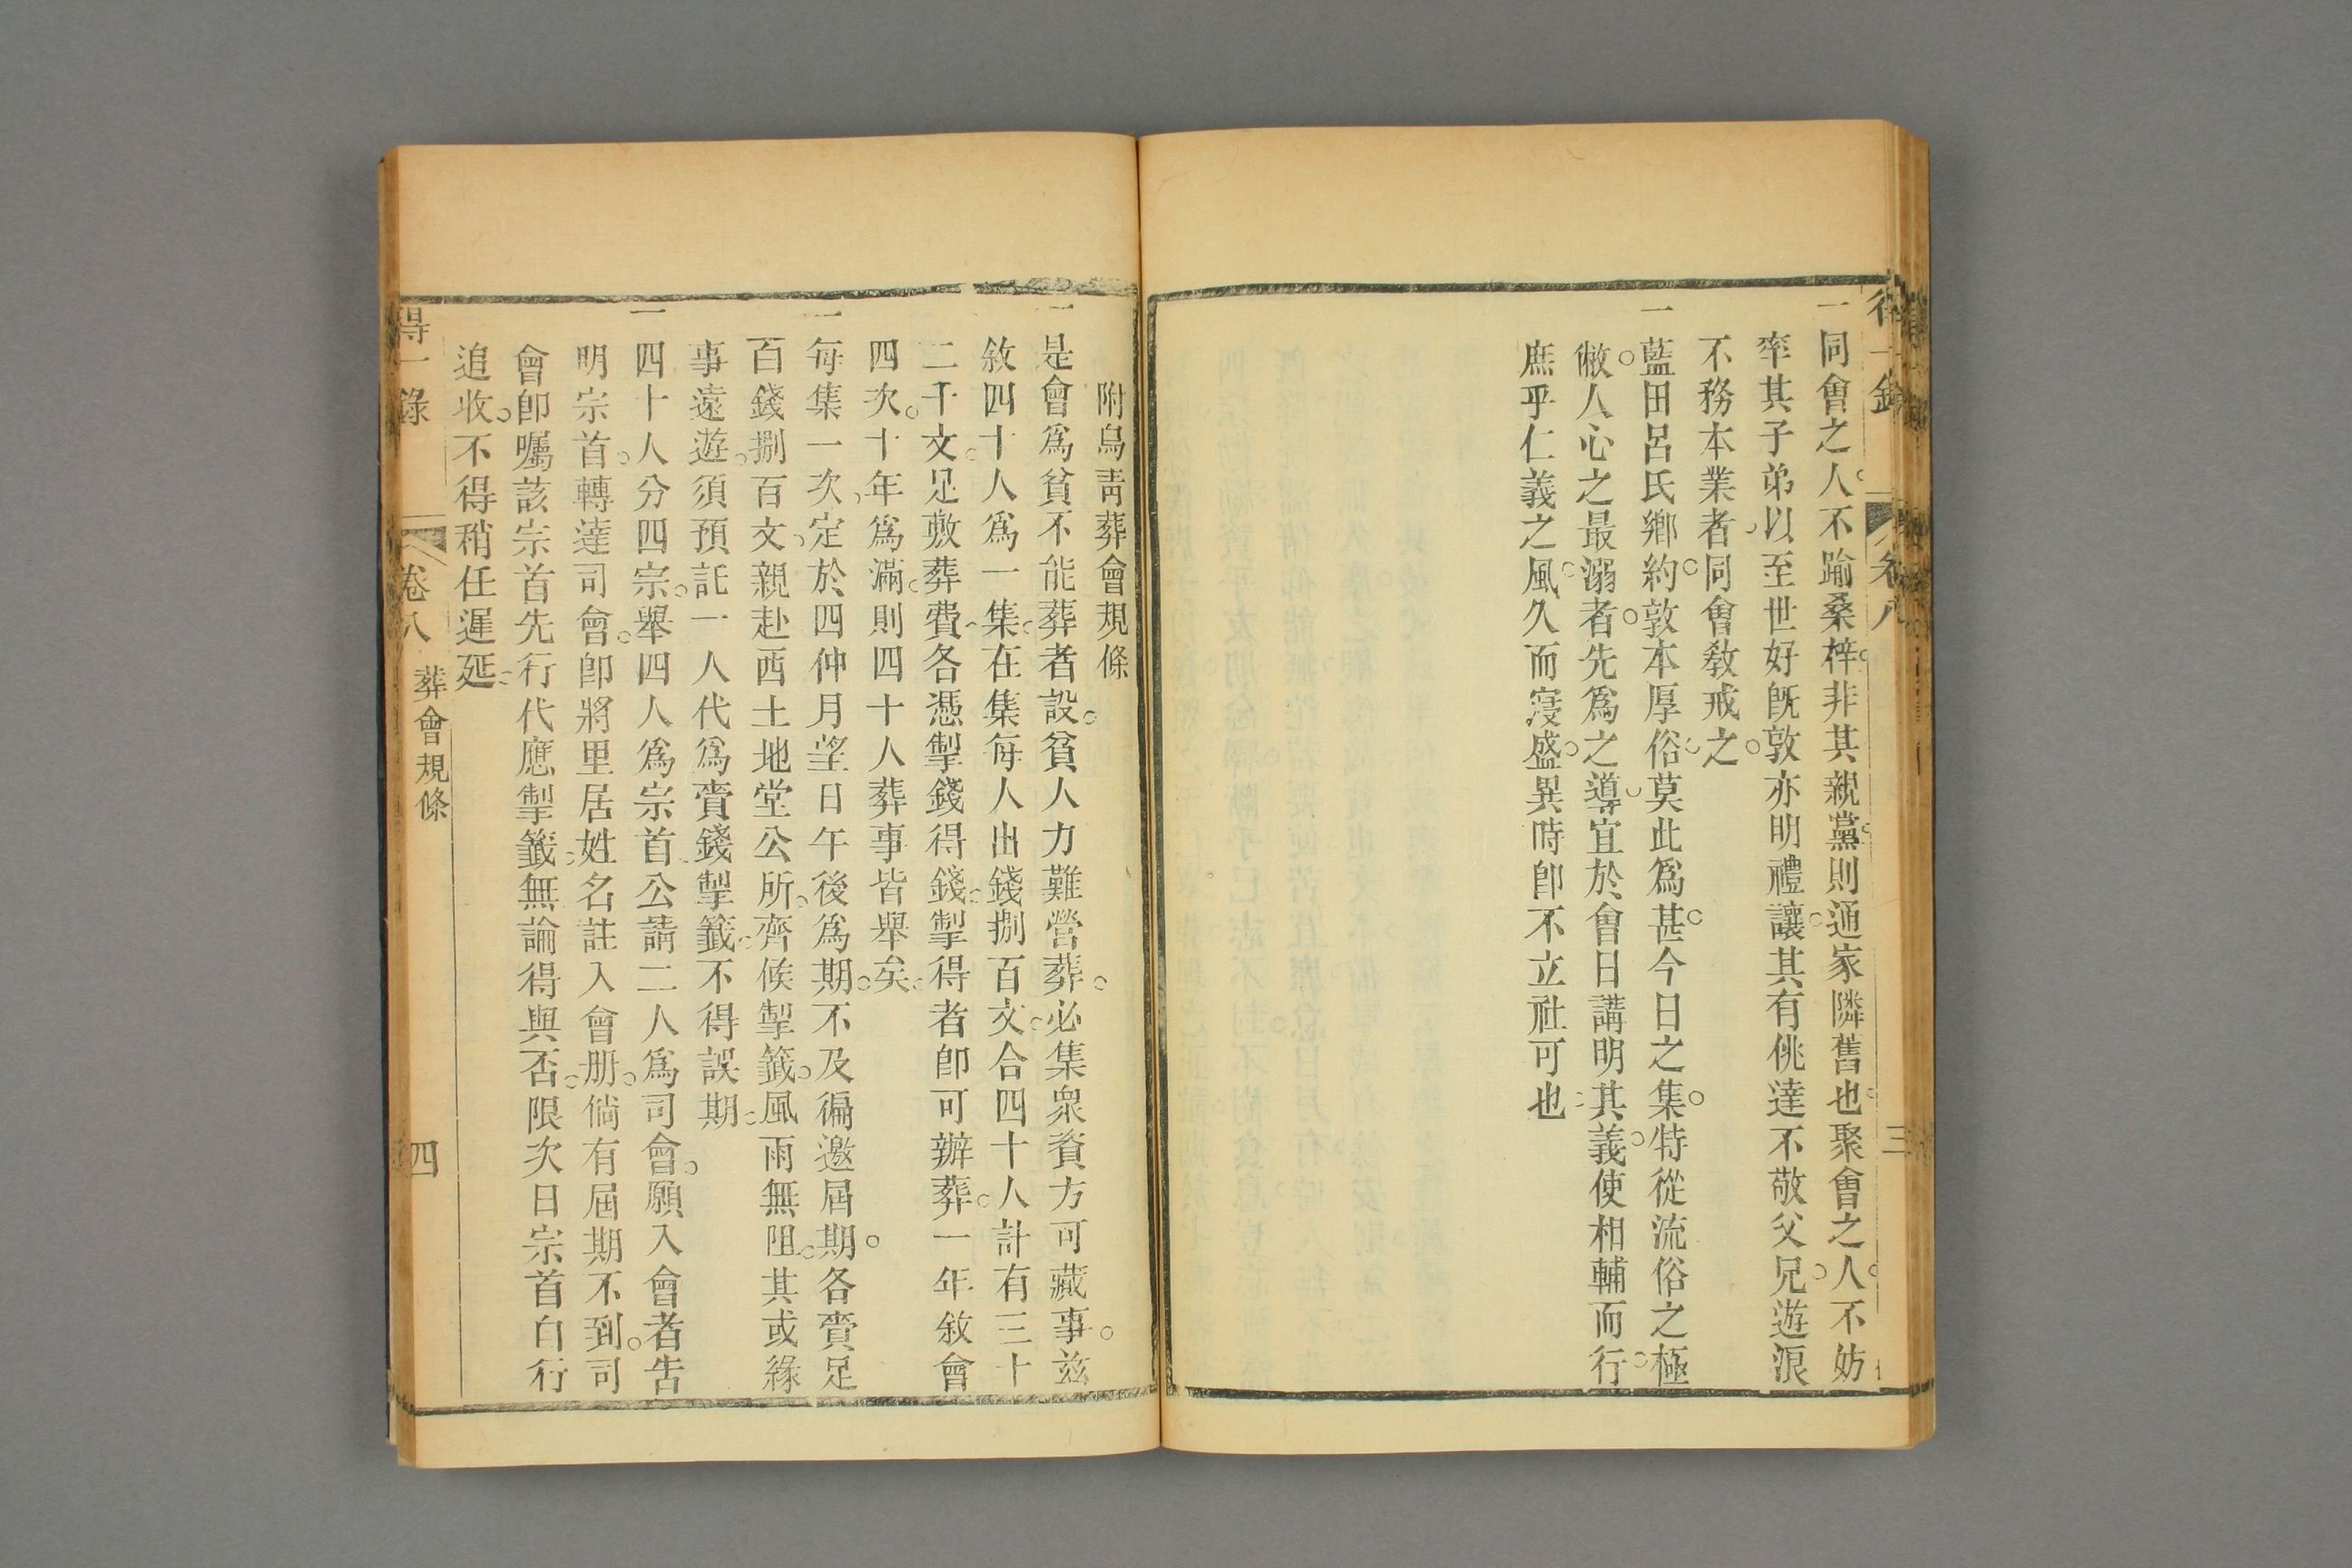 一同會之人。不踰桑梓。非其親黨。則通家隣舊也。聚會之人。不妨
率其子弟以至世好旣敦亦明禮讓。其有佻達不敬父兄。遊浪
不務本業者。同會敎戒之。
一藍田呂氏鄉約。敦本厚俗。莫此爲甚。今日之集。特從流俗之極
敝。人心之最溺者。先爲之導。宜於會日講明其義。使相輔而行。
庶乎仁義之風。久而寖盛。異時卽不立社可也。
得一錄
卷八
三
附烏靑葬會規條
一是會爲貧不能葬者設。貧人力難營葬。必集衆資方可藏事。兹
敘四十人爲一集。在集每人出錢捌百文。合四十人計有三十
二千文。足敷葬費。各憑掣錢得錢。掣得者卽可辦葬。一年敘會
四次。十年爲滿。則四十人葬事皆舉矣。
一每集一次。定於四仲月望日午後爲期。不及徧邀屆期。各賫足
百錢捌百文。親赴西土地堂公所。齊候掣籤。風雨無阻。其或緣
事遠遊。須預託一人代爲賫錢掣籤。不得誤期。
一四十人分四宗。舉四人爲宗首。公請二人爲司會。願入會者吿
明宗首。轉達司會。卽將里居姓名註入會册。倘有屆期不到。司
會卽囑該宗首先行代應掣籤。無論得與否。限次日宗首自行
追收。不得稍任遲延。
得一錄
卷八 葬會規條
四